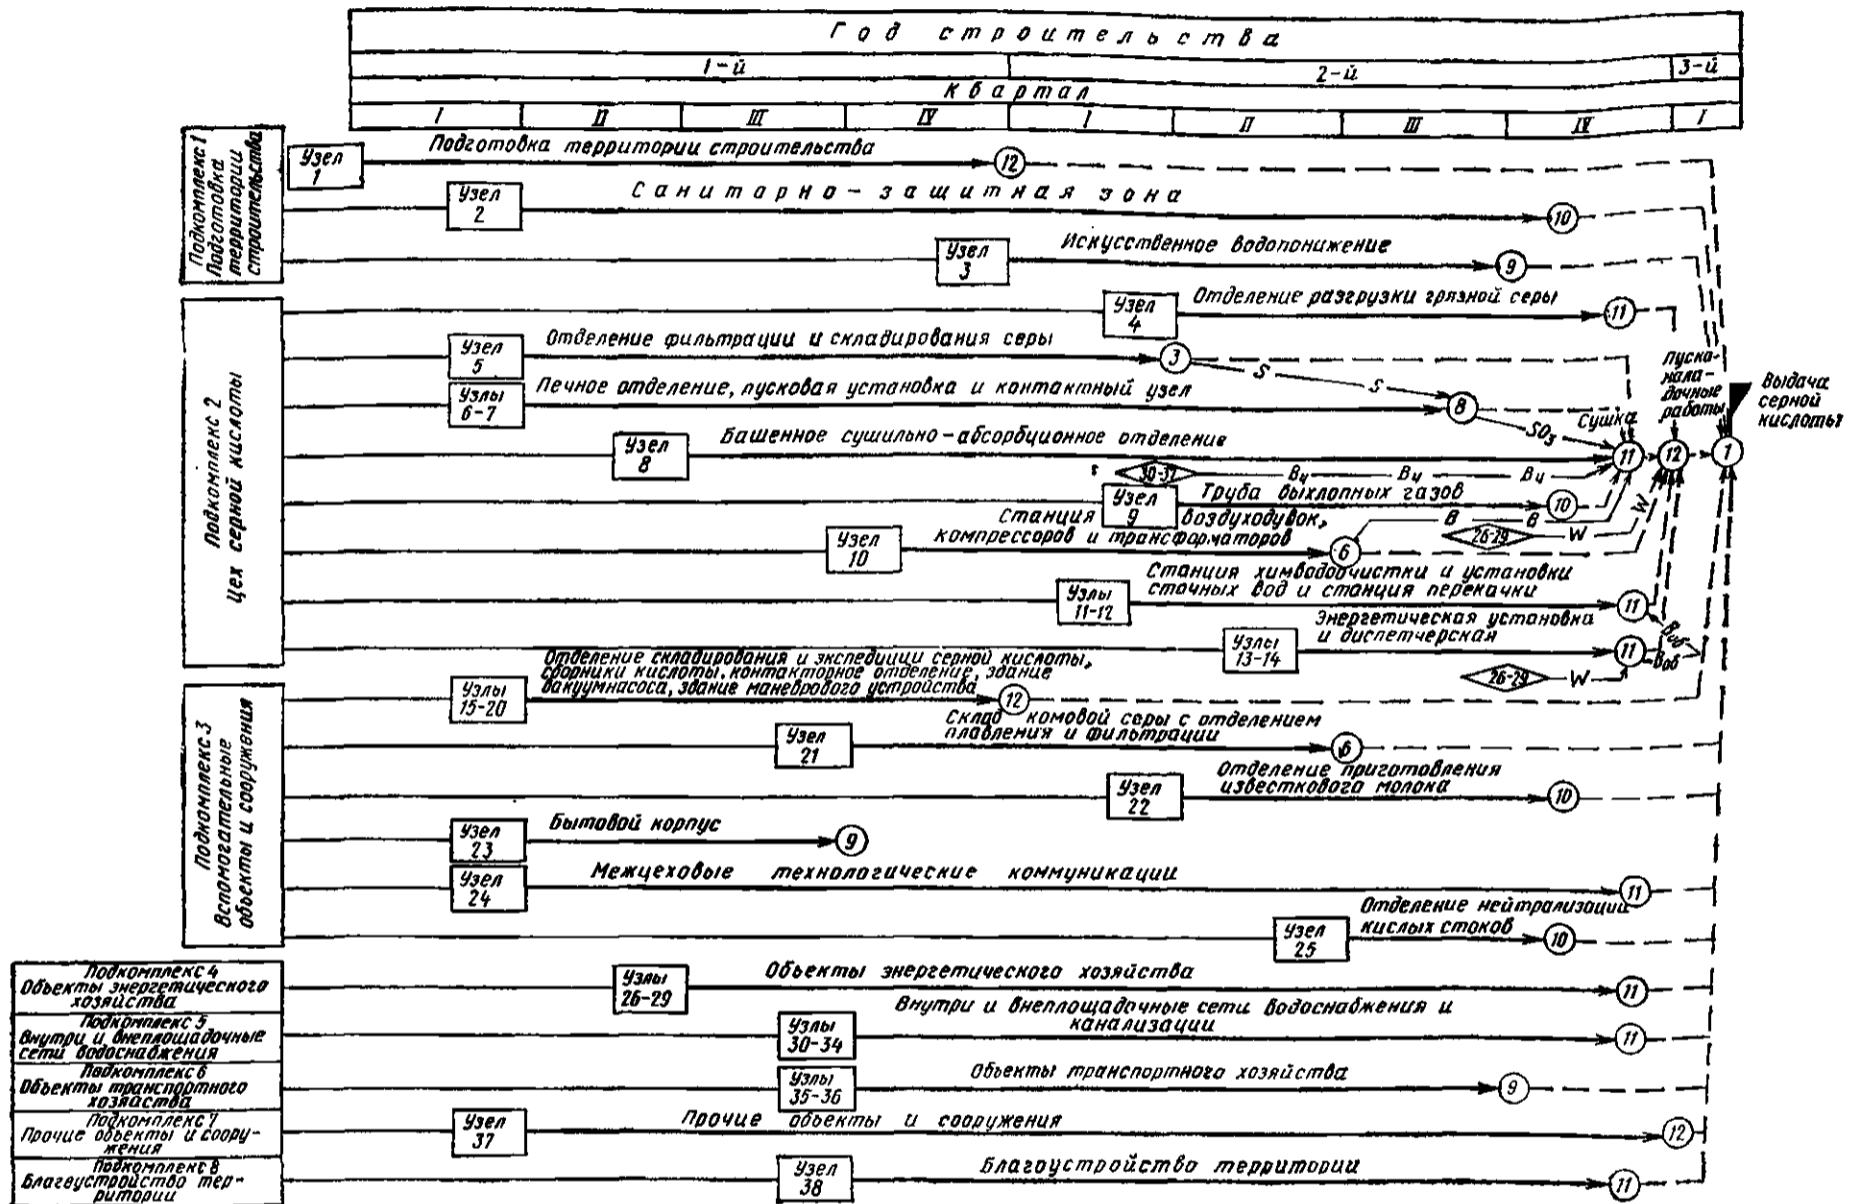 Год строительства
1-й
2-й
3-й
Квартал
I
II
III
IV
I
II
III
IV
I
Подкомплекс 1
Подготовка
территории
строительства
Узел
1
Подготовка территории строительства
12
Узел
2
Санитарно-защитная зона
10
Узел
3
Искусственное водопонижение
9
Подкомплекс 2
Цех серной кислоты
Узел
4
Отделение разгрузки грязной серы
11
Узел
5
Отделение фильтрации и складирования серы
3
S
S
Узлы
6-7
Печное отделение, пусковая установка и контактный узел
8
SO3
Сушка
Пуско-
нала-
дочные
работы
Выдача
серной
кислоты
Узел
8
Башенное сушильно-абсорбционное отделение
11
12
1
30-37
Вч
Вч
Вч
Узел
9
Труба выхлопных газов
10
Узел
10
Станция воздуходувок,
компрессоров и трансформаторов
6
В
В
26-29
W
W
Узлы
11-12
Станция химводоочистки и установки
сточных вод и станция перекачки
11
Воб
Узлы
13-14
Энергетическая установка
и диспетчерская
11
Воб
26-29
W
Подкомплекс 3
Вспомогательные
объекты и сооружения
Узлы
15-20
Отделение складирования и экспедиции серной кислоты,
сборники кислоты, контакторное отделение, здание
вакуумнасоса, здание маневрового устройства
12
Узел
21
Склад комовой серы с отделением
плавления и фильтрации
6
Узел
22
Отделение приготовления
известкового молока
10
Узел
23
Бытовой корпус
9
Узел
24
Межцеховые технологические коммуникации
11
Узел
25
Отделение нейтрализации
кислых стоков
10
Подкомплекс 4
Объекты энергетического
хозяйства
Узлы
26-29
Объекты энергетического хозяйства
11
Подкомплекс 5
Внутри и внеплощадочные
сети водоснабжения
Узлы
30-34
Внутри и внеплощадочные сети водоснабжения и
канализации
11
Подкомплекс 6
Объекты транспортного
хозяйства
Узлы
35-36
Объекты транспортного хозяйства
9
Подкомплекс 7
Прочие объекты и соору-
жения
Узел
37
Прочие объекты и сооружения
12
Подкомплекс 8
Благоустройство тер-
ритории
Узел
38
Благоустройство территории
11